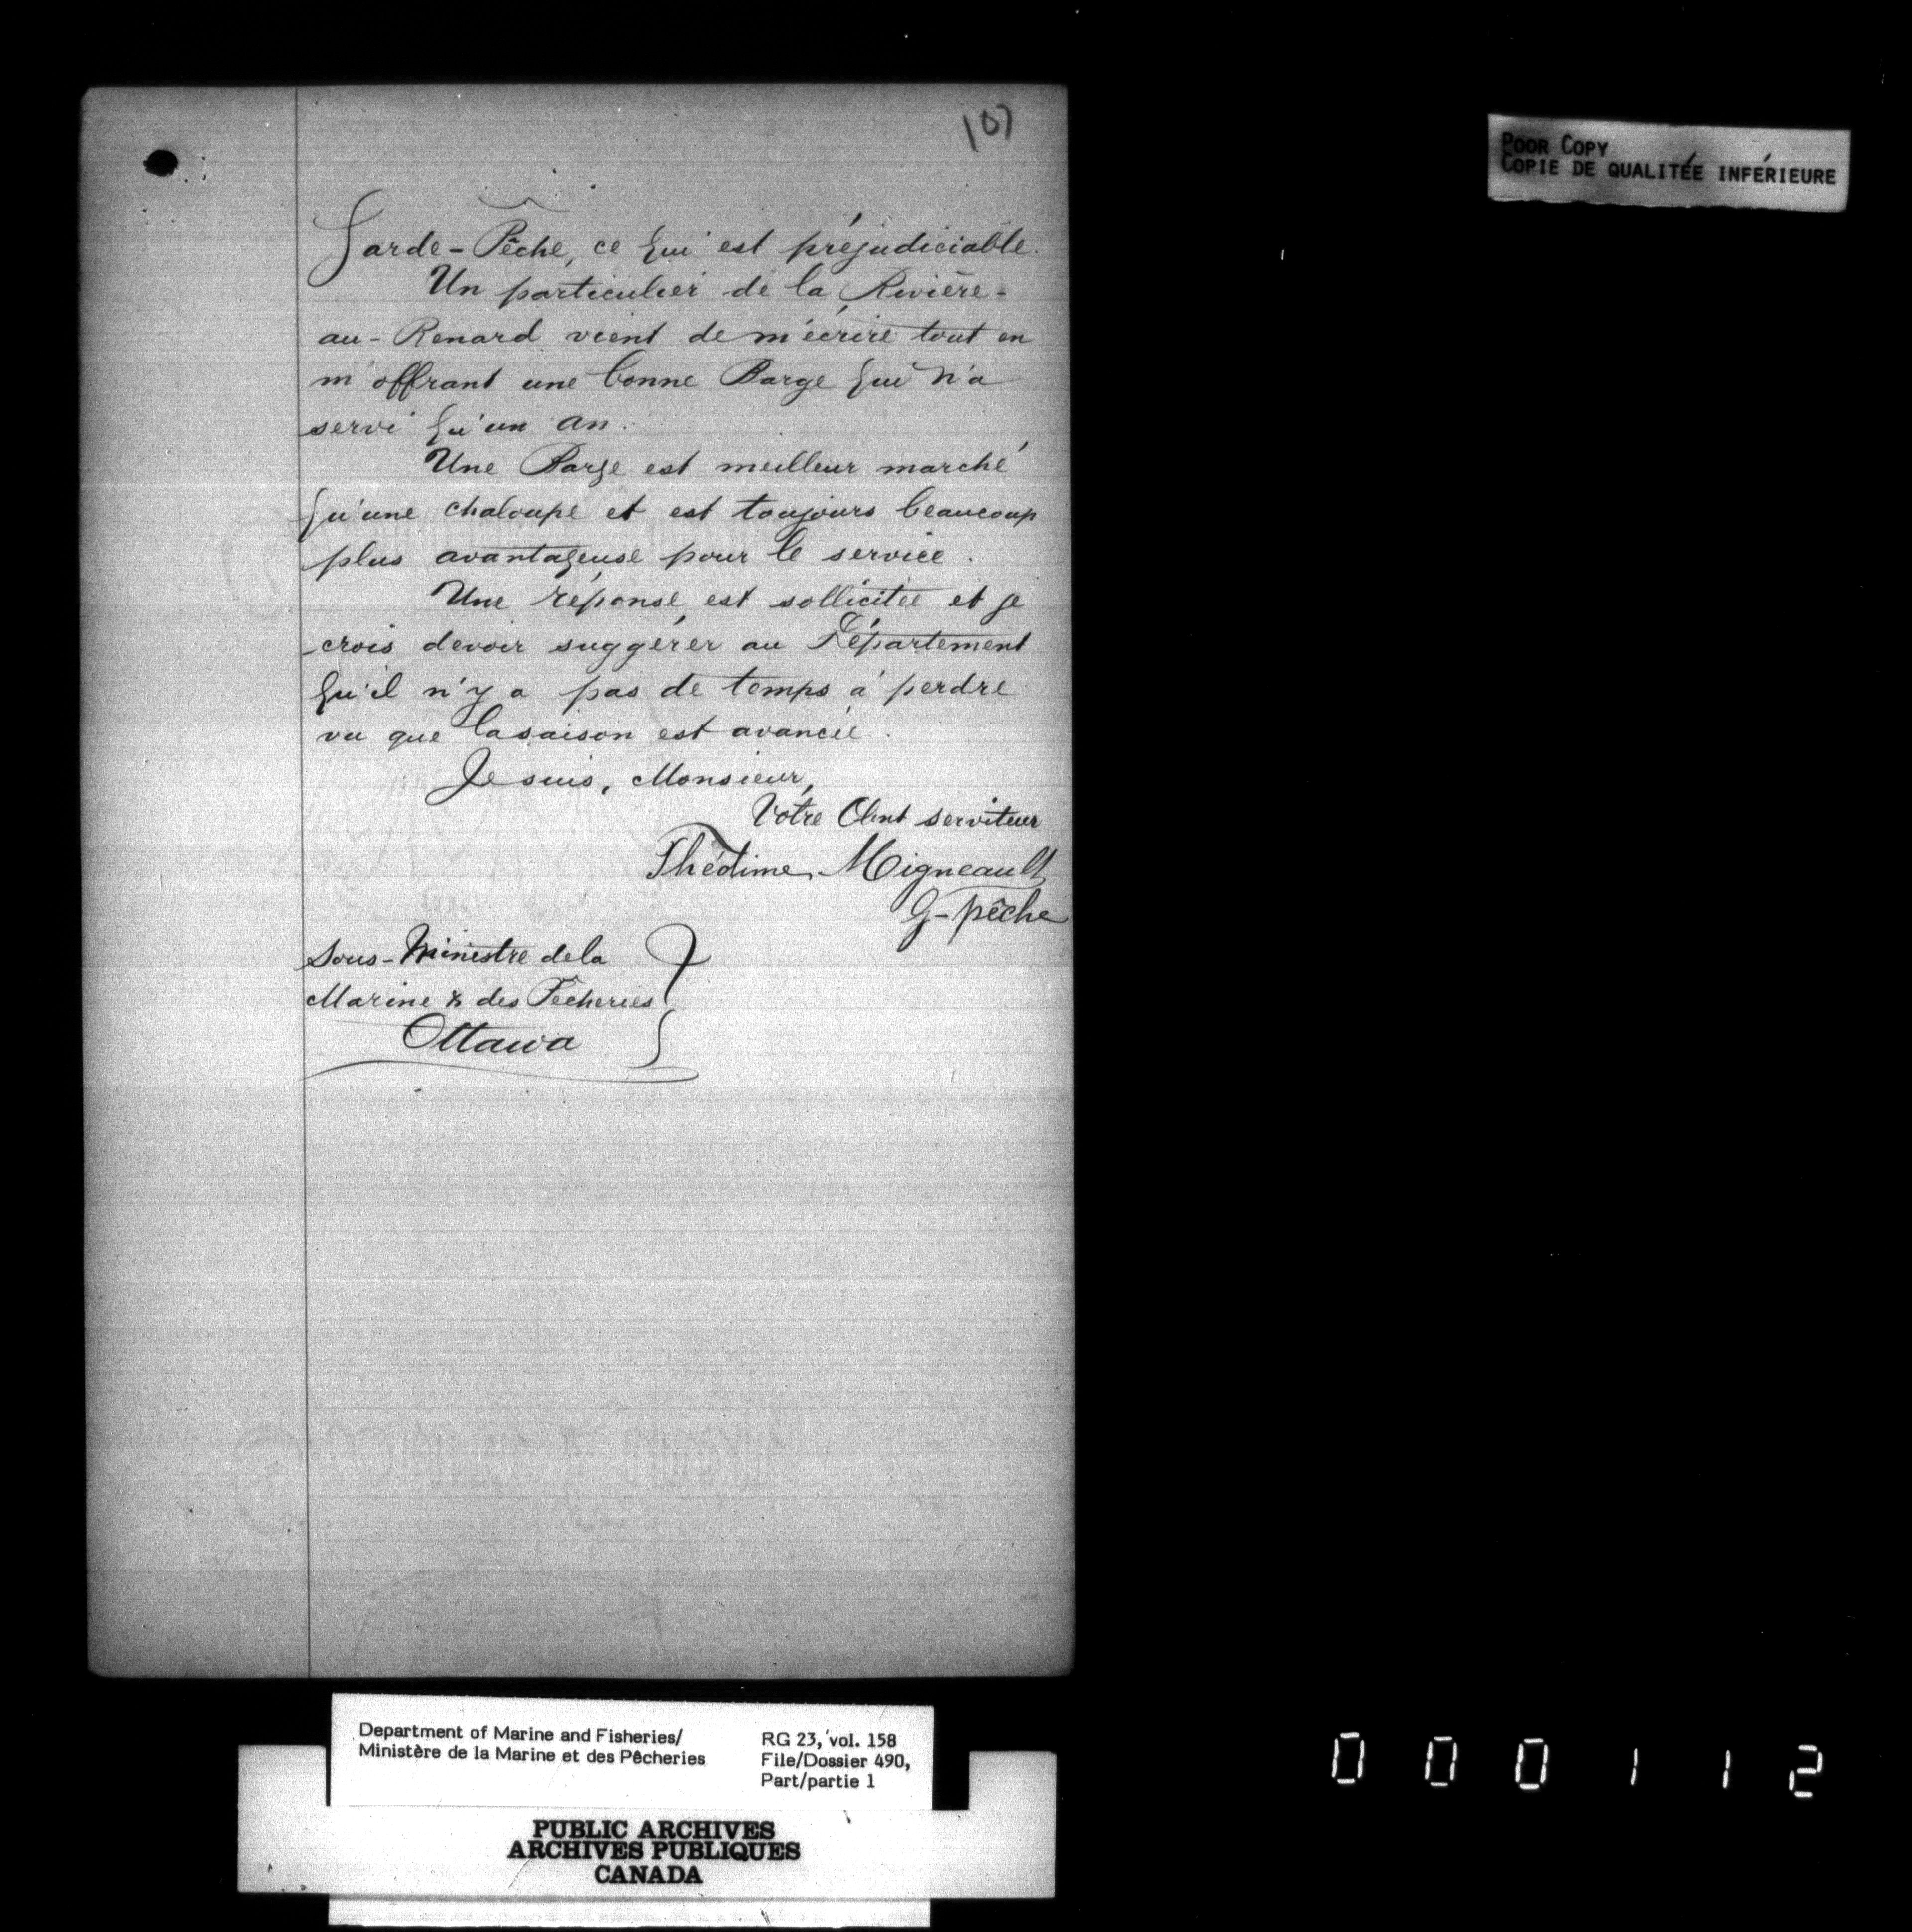 107
Garde-Pêche, ce qui est préjudiciable.
Un particulier de la Rivière-
au-Renard vient de m'écrire tout en
m'offrant une bonne Barge qui n'a
servi qu'un an.
Une Barge est meilleur marché
qu'une chaloupe et est toujours beaucoup
plus avantageuse pour le service.
Une réponse est sollicitée et je
crois devoir suggérer au Département
qu'il n'y a pas de temps à perdre
vu que la saison est avancée.
Je suis, Monsieur,
Votre Obnt serviteur
Théotime Migneault
G-pêche
Sous-Ministre de la
Marine & des Pêcheries
Ottawa
POOR COPY
COPIE DE QUALITÉE INFÉRIEURE
Department of Marine and Fisheries/
Ministère de la Marine et des Pêcheries
RG 23, vol. 158
File/Dossier 490,
Part/partie 1
PUBLIC ARCHIVES
ARCHIVES PUBLIQUES
CANADA
000112